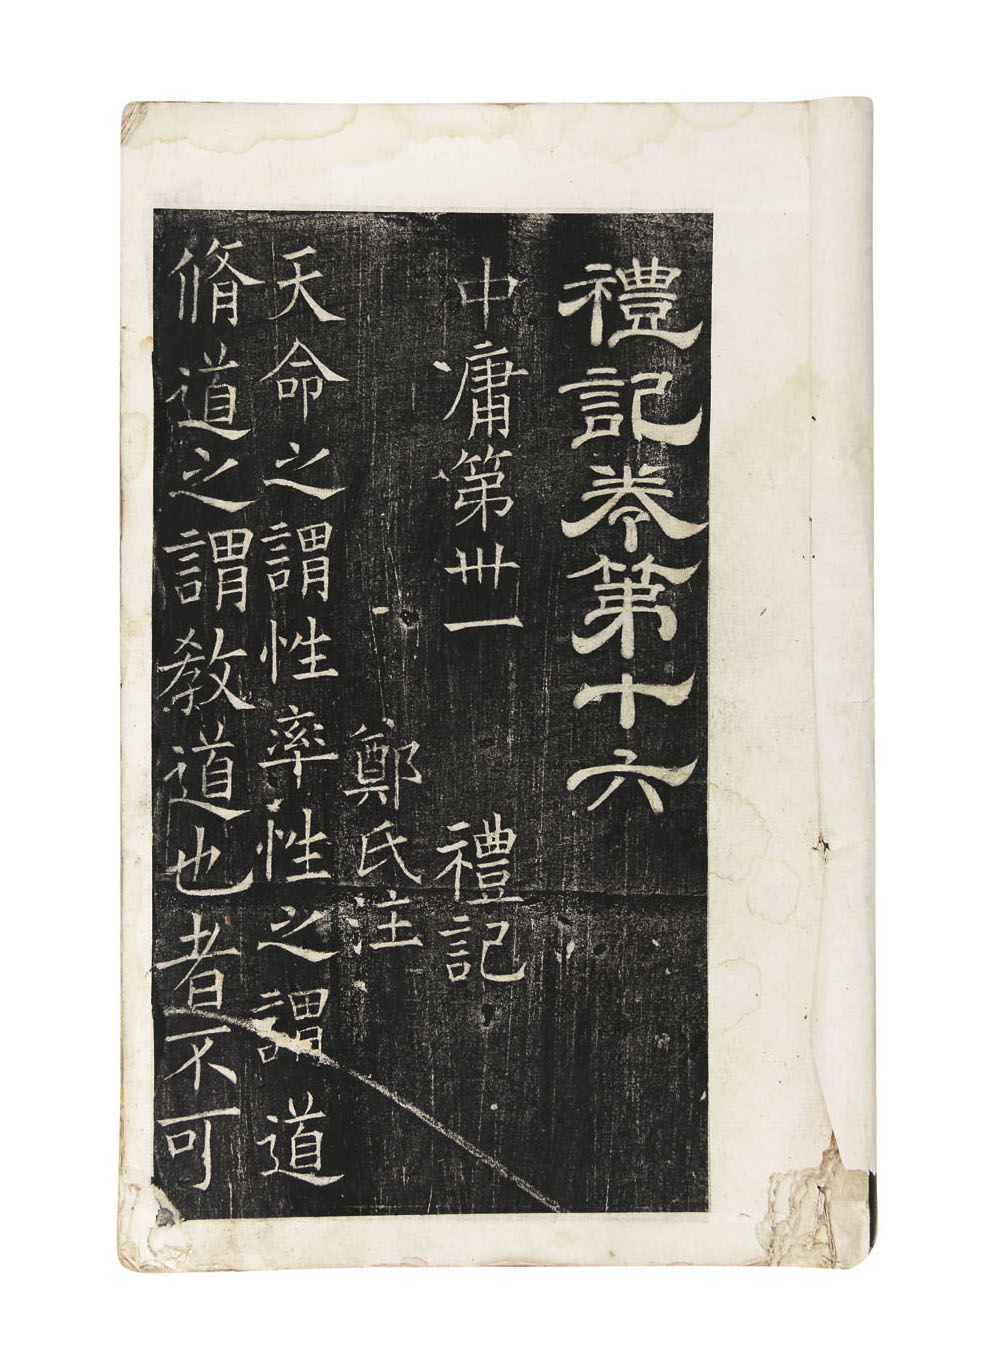 禮記卷第十六
中庸第卅一 禮記
鄭氏注
天命之謂性率性之謂道
脩道之謂教道也者不可